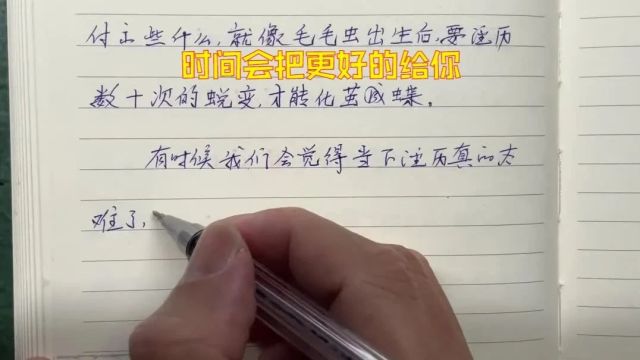 付出些什么,就像毛毛虫出生后,要经历
时间会把更好的给你
数十次的蜕变,才能化茧成蝶。
有时候我们会觉得当下经历真的太
难了,